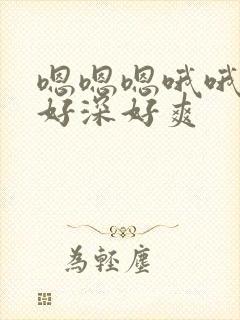 嗯嗯嗯哦哦
好深好爽
为輕塵